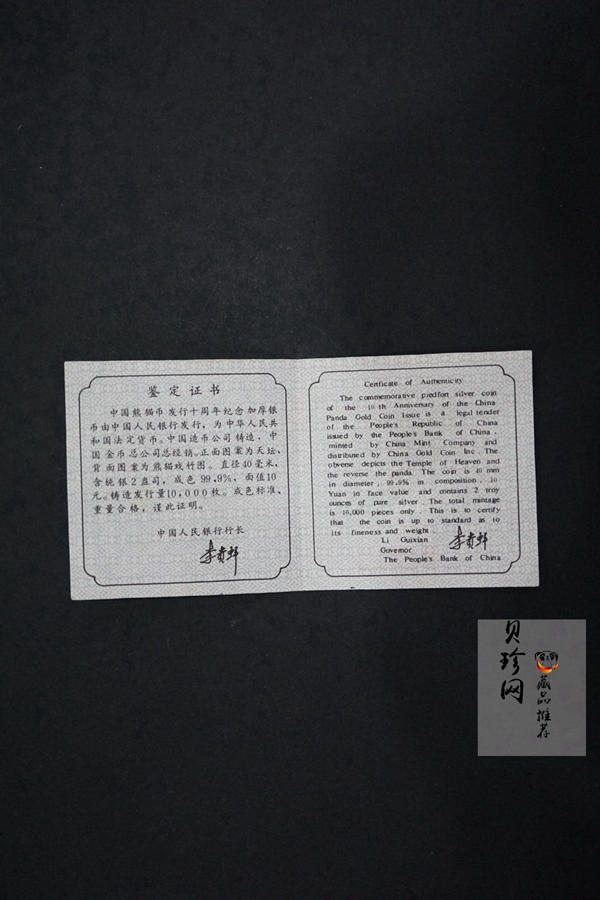 鉴定证书
中国熊猫币发行十周年纪念加厚银
币由中国人民银行发行，为中华人民共
和国法定货币。中国造币公司铸造，中
国金币总公司总经销。正面图案为天坛，
背面图案为熊猫戏竹图。直径40毫米，
含纯银2盎司，成色99.9%，面值10
元。铸造发行量10,000枚。成色标准、
重量合格，谨此证明。
中国人民银行行长
李贵鲜
Certificate of Authenticity
The commemorative piedfort silver coin
of the 10th Anniversary of the China
Panda Gold Coin Issue is a legal tender
of the People's Republic of China
issued by the People's Bank of China,
minted by China Mint Company and
distributed by China Gold Coin Inc. The
obverse depicts the Temple of Heaven and
the reverse the panda. The coin is 40 mm
in diameter, 99.9% in composition, 10
Yuan in face value and contains 2 troy
ounces of pure silver. The total mintage
is 10,000 pieces only. This is to certify
that the coin is up to standard as to
its fineness and weight.
Li Guixian 李贵鲜
Governor
The People's Bank of China
贝珍网
藏品推荐